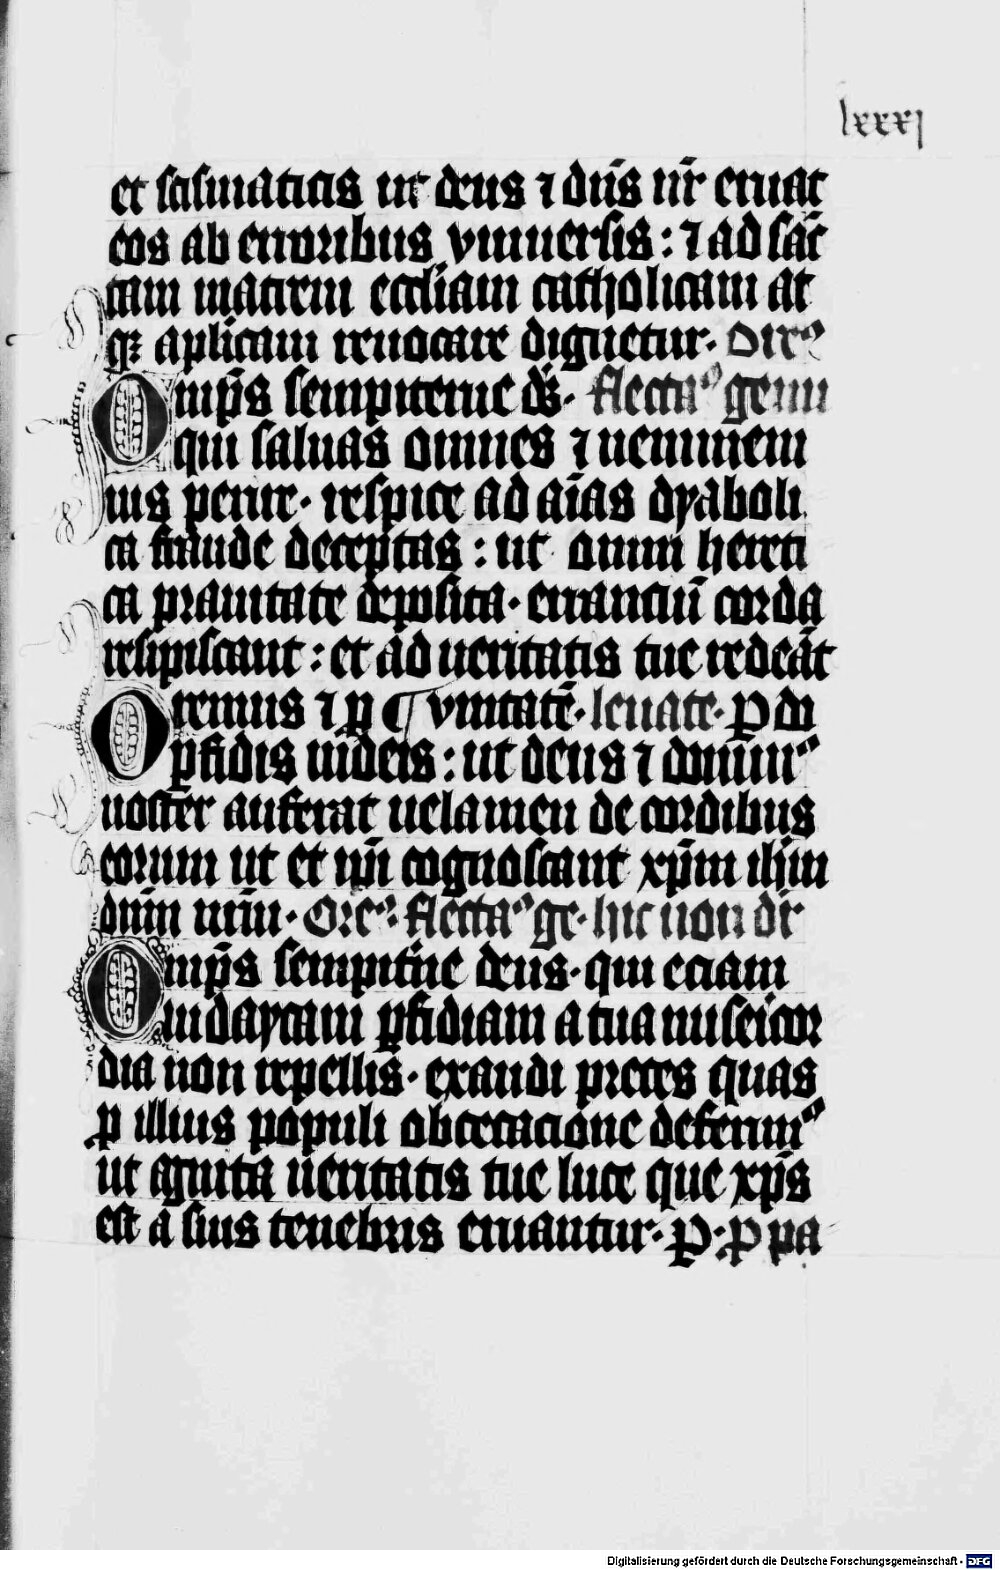 lxxxj
et scismaticis ut deus ⁊ dn̄s nr̄ eruat
eos ab erroribus vniuersis : ⁊ ad sāc
tam matrem eccl̄iam catholicam at
qꝫ aplicam reuocare dignetur · Oreꝰ
Omp̄s sempiterne ds̄ · flectaꝰ genu
qui saluas omnes ⁊ neminem
uis perire · respice ad aīas dyaboli
ca fraude deceptas : ut omni hereti
ca prauitate deposita · erranciū corda
resipiscant : et ad ueritatis tue redeāt
Oremus ⁊ ꝓ ¶ vnitatē · leuate · P do
ꝑfidis iudeis : ut deus ⁊ dominꝰ
noster auferat uelamen de cordibus
eorum ut et ip̄i cognoscant xp̄m ih̄m
dn̄m nr̄m · Oreꝰ flectaꝰ ge · hic non dr̄
Omp̄s sempit̄ne deus · qui eciam
iudaycam ꝑfidiam a tua misericor
dia non repellis · exaudi preces quas
ꝓ illius populi obcecacione deferimꝰ
ut agnita ueritatis tue luce que xp̄s
est a suis tenebris eruantur · P · P pa
Digitalisierung gefördert durch die Deutsche Forschungsgemeinschaft - DFG